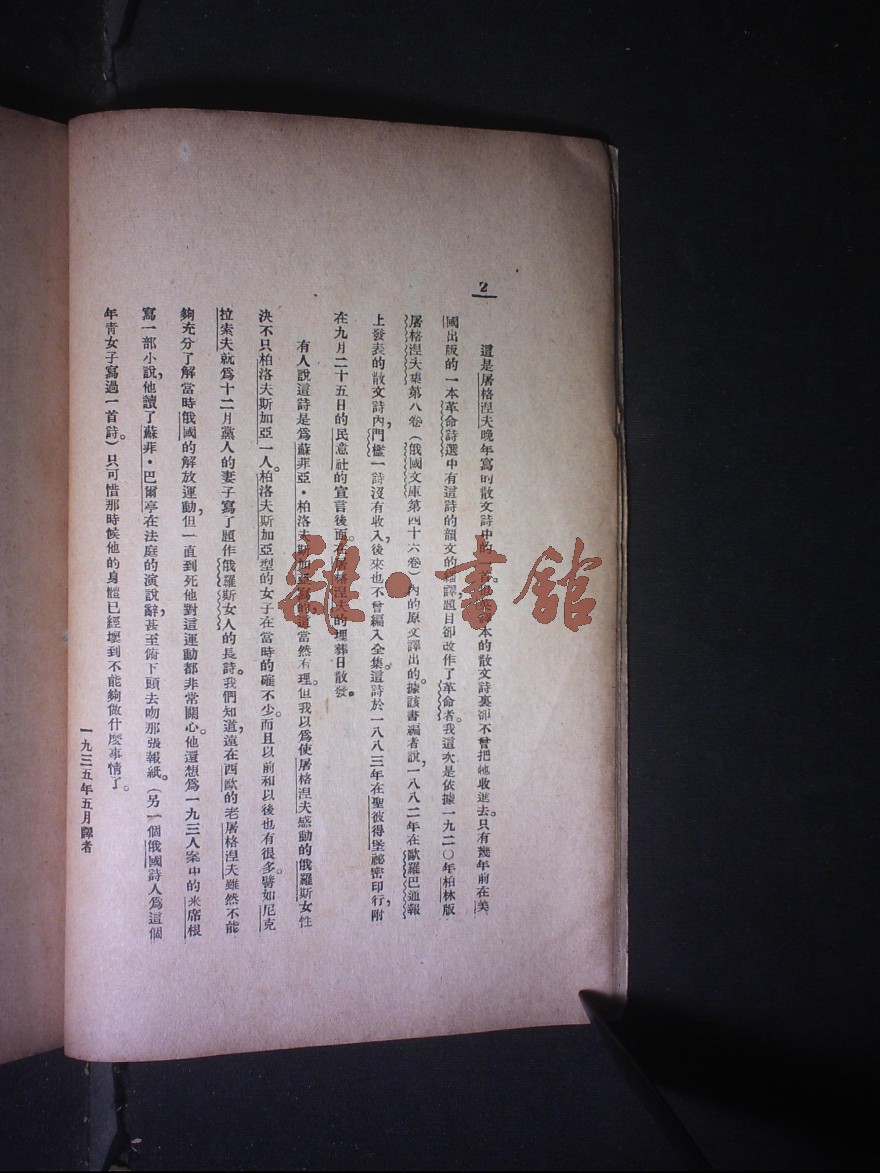 2
這是屠格涅夫晚年寫的散文詩中的一首。本的散文詩裏卻不曾把牠收進去。只有幾年前在美
國出版的一本革命詩選中有這詩的韻文的譯，題目卻改作了革命者。我這次是依據一九二〇年柏林版
屠格涅夫集第八卷（俄國文庫第四十六卷）內的原文譯出的。據該書編者說，一八八二年在歐羅巴通報
上發表的散文詩內，門檻一詩沒有收入，後來也不曾編入全集。這詩於一八八三年在聖彼得堡祕密印行，附
在九月二十五日的民意社的宣言後面，在屠格涅夫的埋葬日散發。
有人說這詩是爲蘇菲亞·柏洛夫斯加亞寫的，這當然有理。但我以爲使屠格涅夫感動的俄羅斯女性
決不只柏洛夫斯加亞一人。柏洛夫斯加亞型的女子在當時的確不少。而且以前和以後也有很多。譬如尼克
拉索夫就爲十二月黨人的妻子寫了題作俄羅斯女人的長詩。我們知道，遠在西歐的老屠格涅夫雖然不能
夠充分了解當時俄國的解放運動，但一直到死他對這運動都非常關心。他還想爲一九三人案中的米席根
寫一部小說，他讀了蘇菲·巴爾亭在法庭的演說辭，甚至俯下頭去吻那張報紙。（另一個俄國詩人爲這個
年青女子寫過一首詩）只可惜那時候他的身體已經壞到不能夠做什麽事情了。
一九三五年五月譯者
雜·書館